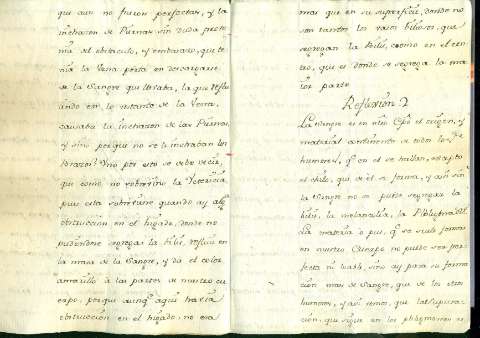 que aun no fuesen perfectas, y la
inchacion de Piernas sin duda prove
nia del obstaculo, y embarazo, que te
nia la Vena porta en descargarse
de la Sangre que llebaba, la que reflu
iendo en lo restante de la Vena,
causaba la inchacion de las Piernas,
y sino porque no se le inchaban los
brazos? Y no por esto se debe decir,
que como no sobrevino la Yctericia,
pues esta sobreviene quando ay alg.
obstruccion en el higado, donde no
pudiendose segregar la bilis, refluie en
la masa de la Sangre, y da el color
amarillo á las partes de nuestro cu
erpo, porque aunq. aqui havia
obstruccion en el higado, no era
mas que en su superficie, donde no
son tantos los vasos biliosos, que
segregan la bilis, como en el cen
tro, que es donde se segrega la ma
ior parte.
Reflexion 2
La Sangre es en nro Cpo el origen, y
material continente de todos los
humores, q. en el se hallan, excepto
el chilo, que de el se forma, y assi sin
la Sangre no se puede segregar la
bilis, la melancolia, la
la materia ò pus, q. se suele formar
en nuestro Cuerpo no puede ser per
fecta ni buena, sino ay para su forma
cion mas de Sangre, que de los otros
humores, y assi vemos, que la Supura
cion, que sigue en los phlegmones es